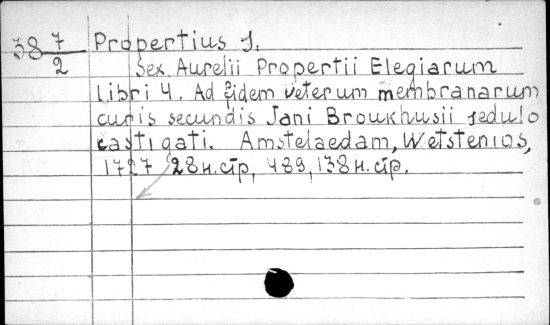 38 7/2 Propertius S.
Sex. Aurelii Propertii Elegiarum
Libri 4. Ad fidem veterum membranarum
curis secundis Jani Broukhusii sedulo
castigati. Amstelaedam, Wetstenios,
1727 28 н. стр, 489, 138 н. стр.